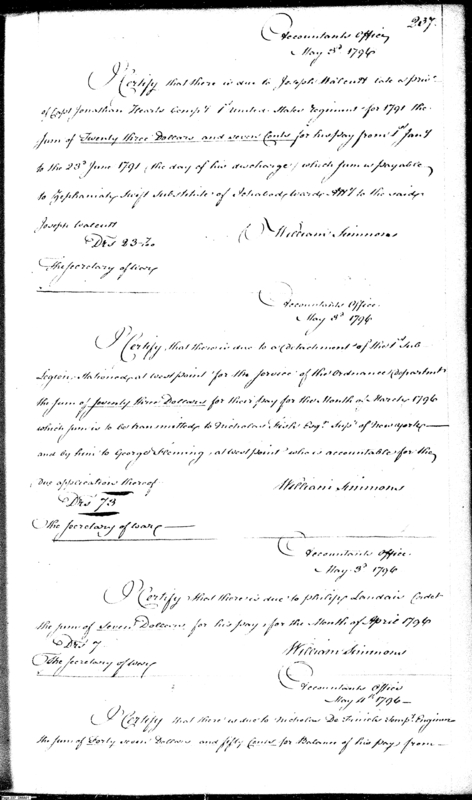 237.
Accountants Office
May 3d 1796
I Certify that there is due to Joseph Walcutt late a priv.
of Capt Jonathan Hearts Comp'y 1st united States Regiment for 1791 the
Sum of Twenty three Dollars and seven Cents for his pay from 1st Jan'y
to the 23d June 1791 (the day of his discharge) which sum is payable
to Zephaniah Swift Substitute of Ichabod Ward Att'y to the said
Joseph Walcutt
Drs 23
William Simmons
The Secretary of War
Accountants Office
May 3d 1796
I Certify that there is due to a Detachment of the 1st Sub
Legion, stationed at west point for the service of the Ordnance Department
the sum of Seventy three Dollars for their pay for the Month of March 1796
which sum is to be transmitted to Nicholas Fish Esqr. Supr. of New york
and by him to George Fleming at west point who is accountable for the
due application thereof
William Simmons
Drs 73
The Secretary of War
Accountants office
May 3d 1796
I Certify that there is due to Philip Landais Cadet
the sum of Seven Dollars for his pay for the Month of April 1796
Drs 7
William Simmons
The Secretary of War
Accountants Office
May 4th 1796
I Certify that there is due to Nicholas De Finiels Temp'y Engineer
the sum of Forty seven Dollars and fifty Cents for Balance of his pay from